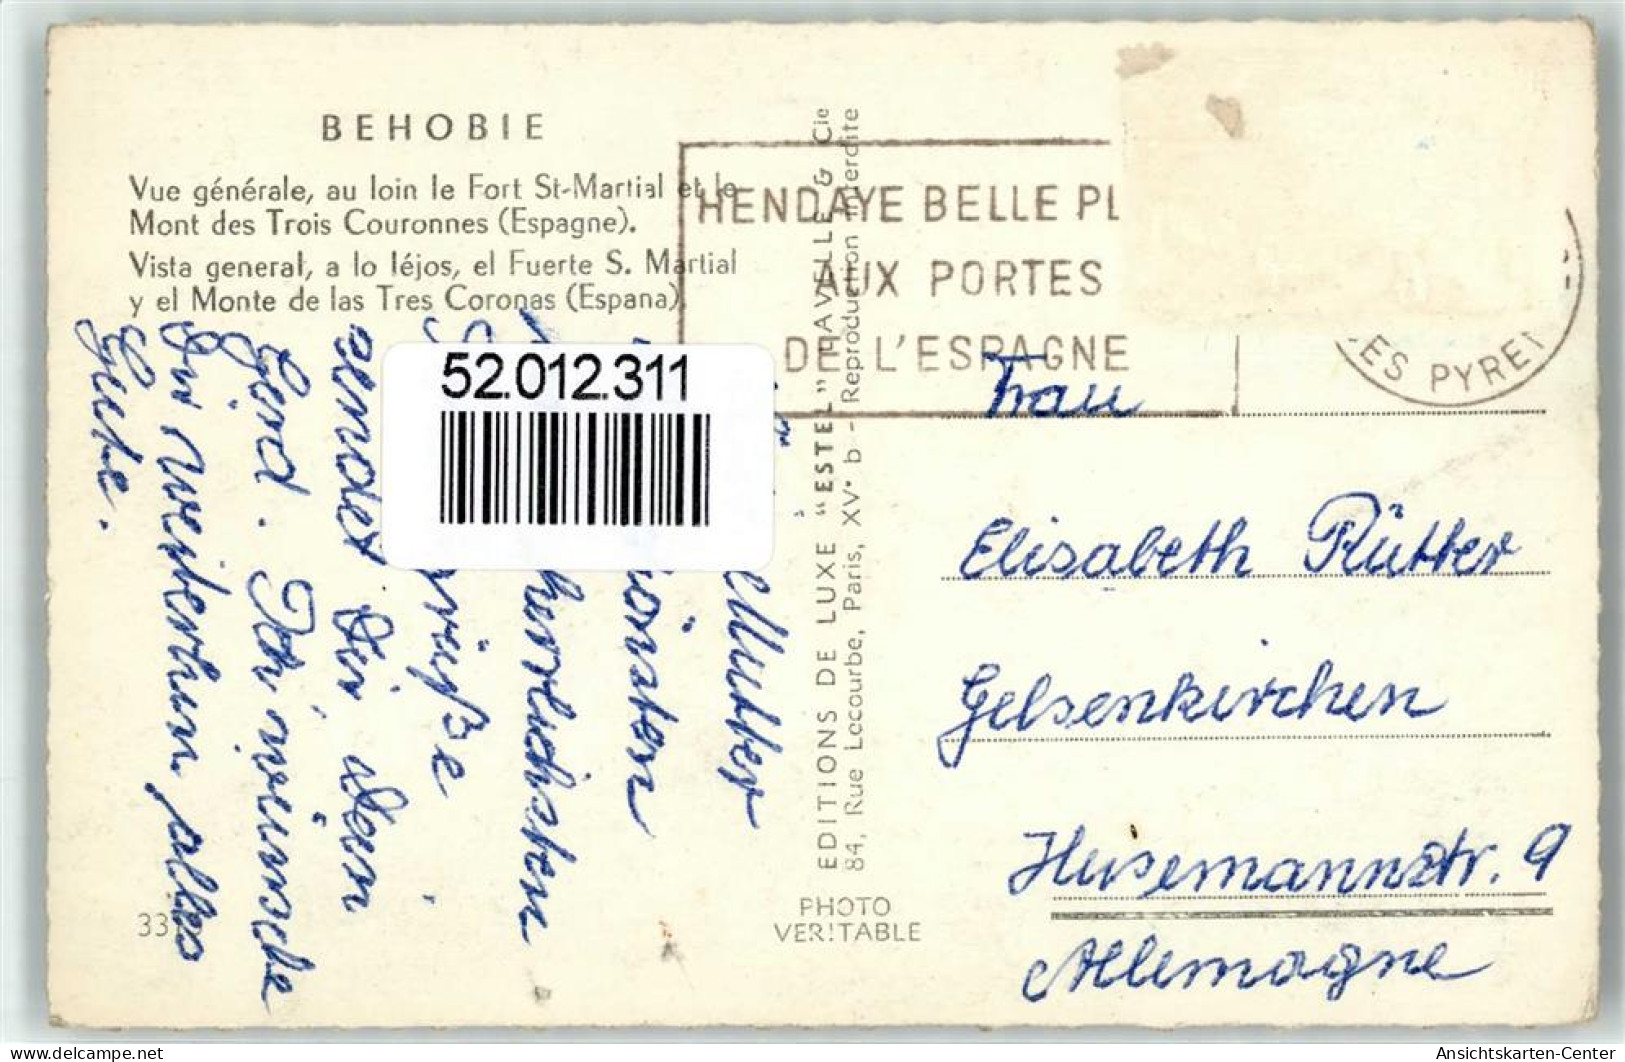 BEHOBIE
Vue générale, au loin le Fort St-Martial et le
Mont des Trois Couronnes (Espagne).
Vista general, a lo léjos, el Fuerte S. Martial
y el Monte de las Tres Coronas (Espana).
HENDAYE BELLE PL
AUX PORTES
DE L'ESPAGNE
ES PYRE
52.012.311
Mutter
herrlichsten
sendet Dir dein
Gerd. Ich wünsche
Dir weiterhin alles
Gute.
EDITIONS DE LUXE "ESTEL" LAVELLE & Cie
84, Rue Lecourbe, Paris, XVe b - Reproduction interdite
PHOTO
VERITABLE
33
Frau
Elisabeth Rütter
Gelsenkirchen
Husemannstr. 9
Allemagne
oldthing.de
Ansichtskarten-Center